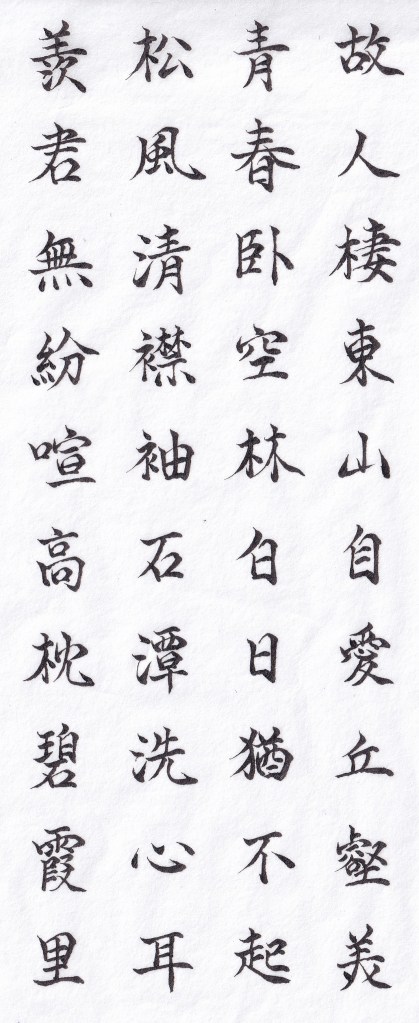 故人棲東山自愛丘壑美
青春卧空林白日猶不起
松風清襟袖石潭洗心耳
羨君無紛喧高枕碧霞里